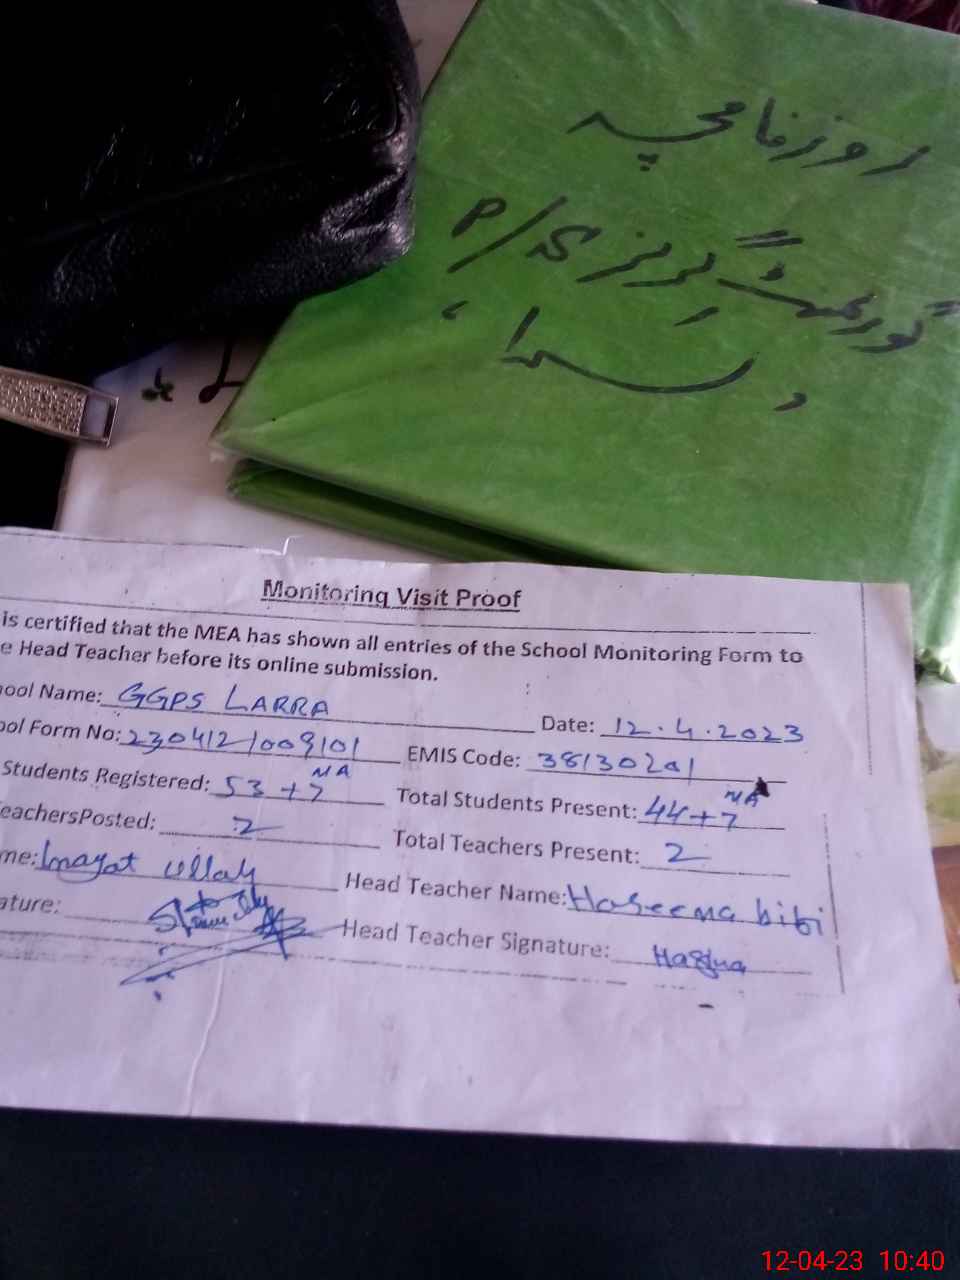 روزنامچہ
گورنمنٹ گرلز ی/P
Monitoring Visit Proof
is certified that the MEA has shown all entries of the School Monitoring Form to
e Head Teacher before its online submission.
ool Name: GGPS LARRA Date: 12.4.2023
ool Form No: 2304121009101 EMIS Code: 38130201
Students Registered: 53+7 NA Total Students Present: 44+7 NA
eachersPosted: 2 Total Teachers Present: 2
me: Inayat Ullah Head Teacher Name: Haseema bibi
ature: Head Teacher Signature:
12-04-23 10:40